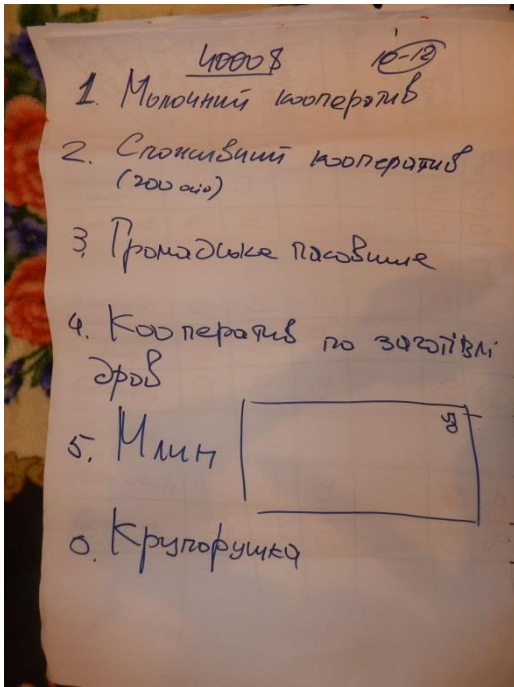 4000$
10-12
1. Молочний кооператив
2. Споживчий кооператив
(200 осіб)
3. Громадське пасовище
4. Кооператив по заготівлі
дров
5. Млин
6. Крупорушка